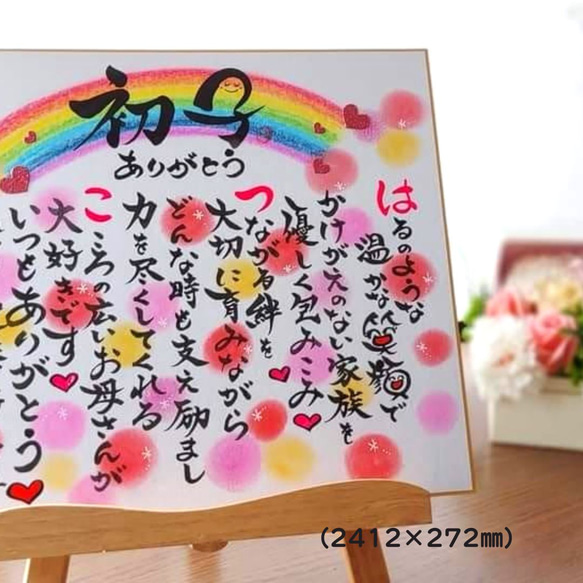 初子
ありがとう
はるのような
温かな笑顔で
かけがえのない家族を
優しく包みこみ
つながる絆を
大切に育みながら
どんな時も支え励まし
力を尽くしてくれる
こころの広いお母さんが
大好きです
いつもありがとう
(2412×272㎜)